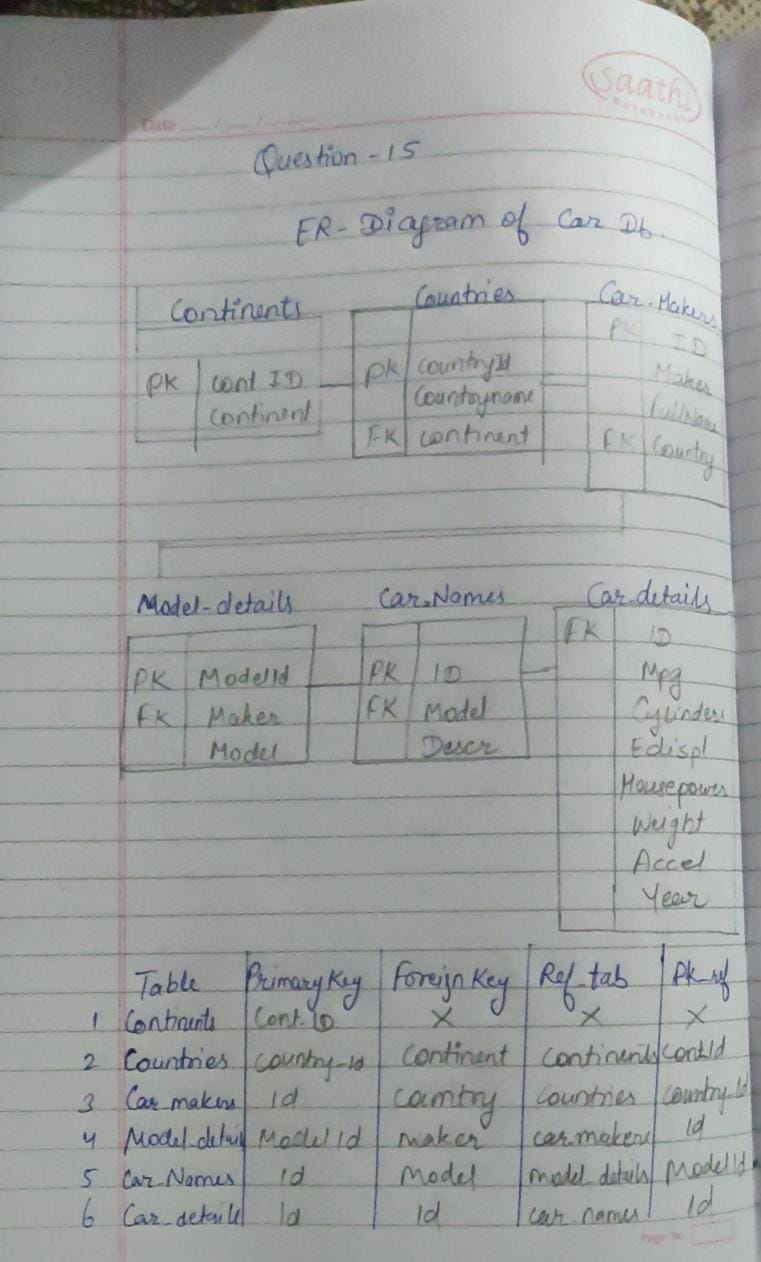 Saathi
Date
Question - 15
ER - Diagram of Car Db.
Continents
PK cont ID
continent
Countries
PK countryId
Countryname
FK continent
Car_Makers
PK ID
Maker
FullName
FK Country
Model-details
PK ModelId
FK Maker
Model
Car_Names
PK ID
FK Model
Descr
Car_details
FK ID
Mpg
Cylinders
Edispl
Housepower
Weight
Accel
Year
Table Primary Key Foreign Key Ref_tab Pk_ref
1 Continents Cont.ID X X X
2 Countries country_Id Continent continents contId
3 Car_makers id country countries country_Id
4 Model_detail Model id maker car_makers id
5 Car_Names id Model model_details ModelId
6 Car_details Id Id car_names Id
Page No.